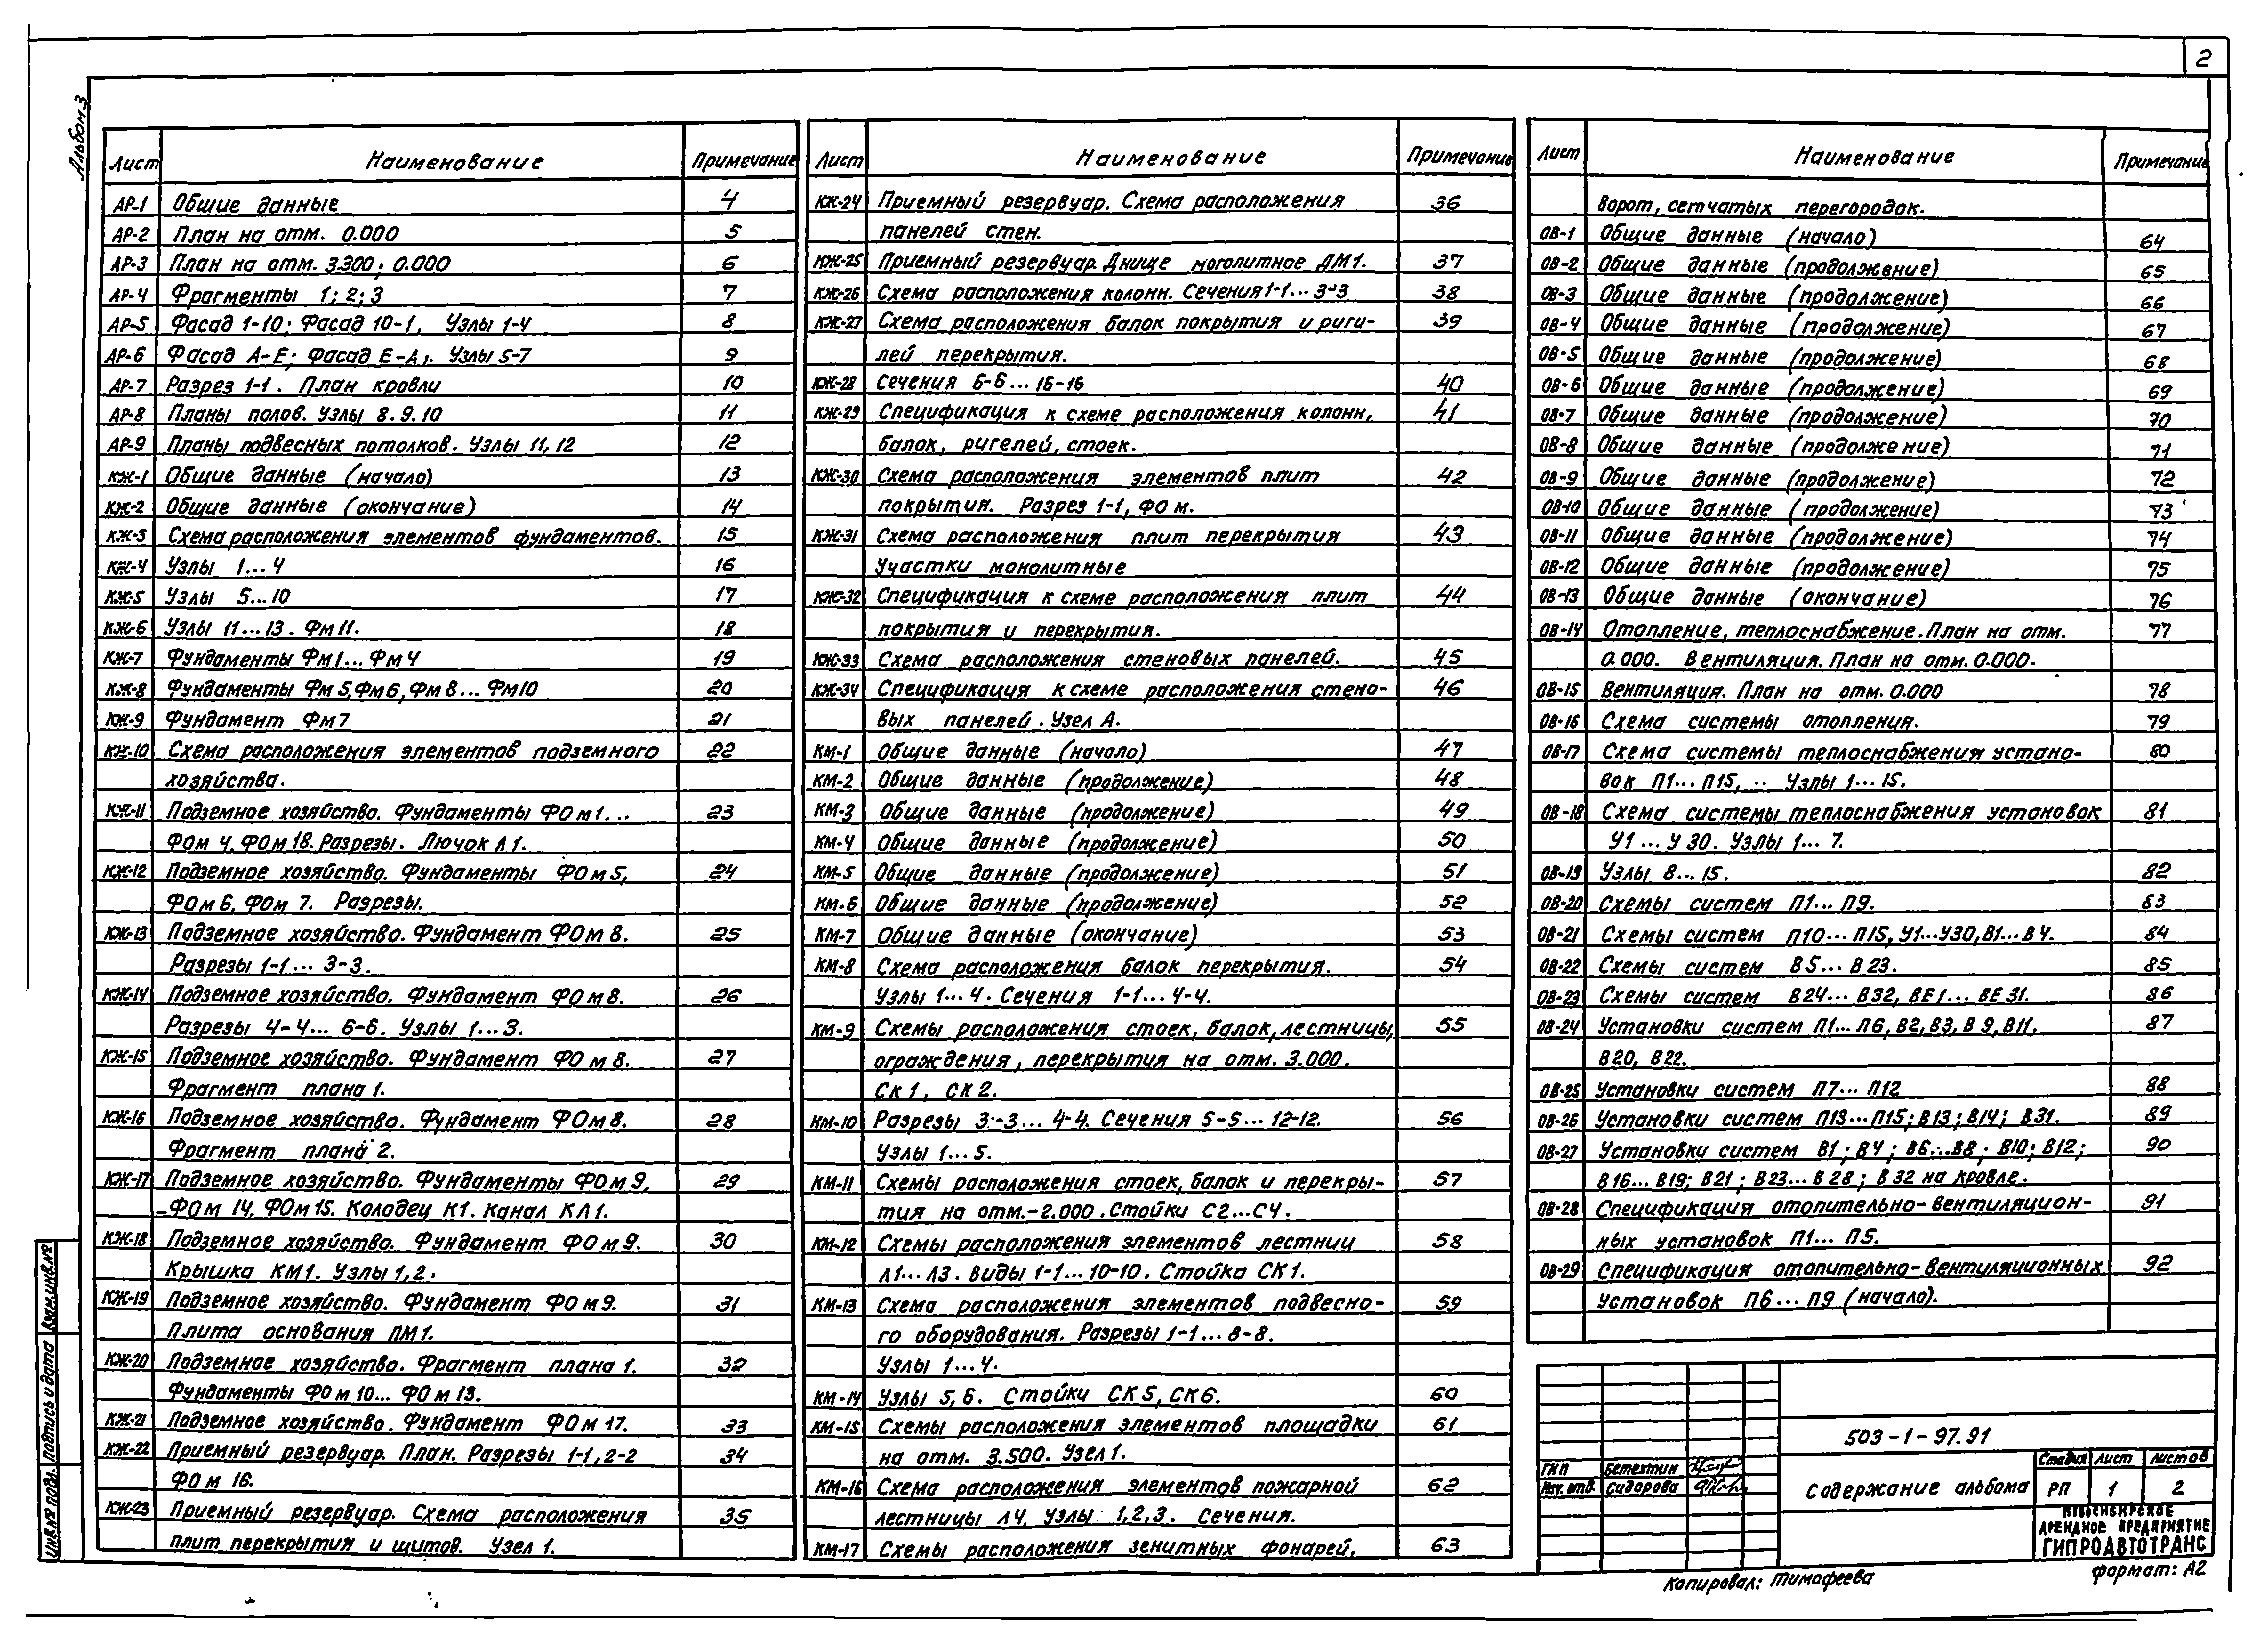 2
Альбом 3
Лист Наименование Примечание
АР-1 Общие данные 4
АР-2 План на отм. 0.000 5
АР-3 План на отм. 3.300; 0.000 6
АР-4 Фрагменты 1; 2; 3 7
АР-5 Фасад 1-10; Фасад 10-1. Узлы 1-4 8
АР-6 Фасад А-Е; Фасад Е-А;. Узлы 5-7 9
АР-7 Разрез 1-1. План кровли 10
АР-8 Планы полов. Узлы 8.9.10 11
АР-9 Планы подвесных потолков. Узлы 11,12 12
КЖ-1 Общие данные (начало) 13
КЖ-2 Общие данные (окончание) 14
КЖ-3 Схема расположения элементов фундаментов. 15
КЖ-4 Узлы 1...4 16
КЖ-5 Узлы 5...10 17
КЖ-6 Узлы 11...13. Фм11. 18
КЖ-7 Фундаменты Фм1... Фм4 19
КЖ-8 Фундаменты Фм5, Фм6, Фм8... Фм10 20
КЖ-9 Фундамент Фм7 21
КЖ-10 Схема расположения элементов подземного 22
хозяйства.
КЖ-11 Подземное хозяйство. Фундаменты ФОм1... 23
ФОм 4, ФОм 18. Разрезы. Лючок Л1.
КЖ-12 Подземное хозяйство. Фундаменты ФОм5, 24
ФОм6, ФОм 7. Разрезы.
КЖ-13 Подземное хозяйство. Фундамент ФОм8. 25
Разрезы 1-1... 3-3.
КЖ-14 Подземное хозяйство. Фундамент ФОм8. 26
Разрезы 4-4... 6-6. Узлы 1...3.
КЖ-15 Подземное хозяйство. Фундамент ФОм8. 27
Фрагмент плана 1.
КЖ-16 Подземное хозяйство. Фундамент ФОм8. 28
Фрагмент плана 2.
КЖ-17 Подземное хозяйство. Фундаменты ФОм9, 29
ФОм 14, ФОм 15. Колодец К1. Канал КЛ1.
КЖ-18 Подземное хозяйство. Фундамент ФОм9. 30
Крышка КМ1. Узлы 1,2.
КЖ-19 Подземное хозяйство. Фундамент ФОм9. 31
Плита основания ПМ1.
КЖ-20 Подземное хозяйство. Фрагмент плана 1. 32
Фундаменты ФОм10... ФОм13.
КЖ-21 Подземное хозяйство. Фундамент ФОм17. 33
КЖ-22 Приемный резервуар. План. Разрезы 1-1, 2-2 34
ФОм 16.
КЖ-23 Приемный резервуар. Схема расположения 35
плит перекрытия и щитов. Узел 1.
Лист Наименование Примечание
КЖ-24 Приемный резервуар. Схема расположения 36
панелей стен.
КЖ-25 Приемный резервуар. Днище моголитное ДМ1. 37
КЖ-26 Схема расположения колонн. Сечения 1-1... 3-3 38
КЖ-27 Схема расположения балок покрытия и риги- 39
лей перекрытия.
КЖ-28 Сечения 6-6... 16-16 40
КЖ-29 Спецификация к схеме расположения колонн, 41
балок, ригелей, стоек.
КЖ-30 Схема расположения элементов плит 42
покрытия. Разрез 1-1, ФОм.
КЖ-31 Схема расположения плит перекрытия 43
Участки монолитные
КЖ-32 Спецификация к схеме расположения плит 44
покрытия и перекрытия.
КЖ-33 Схема расположения стеновых панелей. 45
КЖ-34 Спецификация к схеме расположения стено- 46
вых панелей. Узел А.
КМ-1 Общие данные (начало) 47
КМ-2 Общие данные (продолжение) 48
КМ-3 Общие данные (продолжение) 49
КМ-4 Общие данные (продолжение) 50
КМ-5 Общие данные (продолжение) 51
КМ-6 Общие данные (продолжение) 52
КМ-7 Общие данные (окончание) 53
КМ-8 Схема расположения балок перекрытия. 54
Узлы 1...4. Сечения 1-1... 4-4.
КМ-9 Схемы расположения стоек, балок, лестницы, 55
ограждения, перекрытия на отм. 3.000.
СК1, СК2.
КМ-10 Разрезы 3-3... 4-4. Сечения 5-5... 12-12. 56
Узлы 1...5.
КМ-11 Схемы расположения стоек, балок и перекры- 57
тия на отм.-2.000. Стойки С2...С4.
КМ-12 Схемы расположения элементов лестниц 58
Л1... Л3. Виды 1-1... 10-10. Стойка СК1.
КМ-13 Схема расположения элементов подвесно- 59
го оборудования. Разрезы 1-1... 8-8.
Узлы 1...4.
КМ-14 Узлы 5,6. Стойки СК5, СК6. 60
КМ-15 Схемы расположения элементов площадки 61
на отм. 3.500. Узел 1.
КМ-16 Схема расположения элементов пожарной 62
лестницы Л4. Узлы 1,2,3. Сечения.
КМ-17 Схемы расположения зенитных фонарей, 63
Лист Наименование Примечание
ворот, сетчатых перегородок.
ОВ-1 Общие данные (начало) 64
ОВ-2 Общие данные (продолжение) 65
ОВ-3 Общие данные (продолжение) 66
ОВ-4 Общие данные (продолжение) 67
ОВ-5 Общие данные (продолжение) 68
ОВ-6 Общие данные (продолжение) 69
ОВ-7 Общие данные (продолжение) 70
ОВ-8 Общие данные (продолжение) 71
ОВ-9 Общие данные (продолжение) 72
ОВ-10 Общие данные (продолжение) 73
ОВ-11 Общие данные (продолжение) 74
ОВ-12 Общие данные (продолжение) 75
ОВ-13 Общие данные (окончание) 76
ОВ-14 Отопление, теплоснабжение. План на отм. 77
0.000. Вентиляция. План на отм. 0.000.
ОВ-15 Вентиляция. План на отм. 0.000 78
ОВ-16 Схема системы отопления. 79
ОВ-17 Схема системы теплоснабжения устано- 80
вок П1... П15, .. Узлы 1... 15.
ОВ-18 Схема системы теплоснабжения установок 81
У1... У30. Узлы 1... 7.
ОВ-19 Узлы 8... 15. 82
ОВ-20 Схемы систем П1... П9. 83
ОВ-21 Схемы систем П10... П15, У1...У30, В1... В4. 84
ОВ-22 Схемы систем В5... В23. 85
ОВ-23 Схемы систем В24... В32, ВЕ1... ВЕ31. 86
ОВ-24 Установки систем П1... П6, В2, В3, В9, В11, 87
В20, В22.
ОВ-25 Установки систем П7... П12 88
ОВ-26 Установки систем П13...П15; В13; В14; В31. 89
ОВ-27 Установки систем В1; В4; В6...В8; В10; В12; 90
В16... В19; В21; В23... В28; В32 на кровле.
ОВ-28 Спецификация отопительно-вентиляцион- 91
ных установок П1... П5.
ОВ-29 Спецификация отопительно-вентиляционных 92
установок П6... П9 (начало).
503-1-97.91
ГИП Бетехтин
Нач. отд. Сидорова
Содержание альбома
Стадия Лист Листов
РП 1 2
НОВОСИБИРСКОЕ
АРЕНДНОЕ ПРЕДПРИЯТИЕ
ГИПРОАВТОТРАНС
Копировал: Тимофеева
Формат: А2
Взам.инв.№
Подпись и дата
Инв.№ подл.